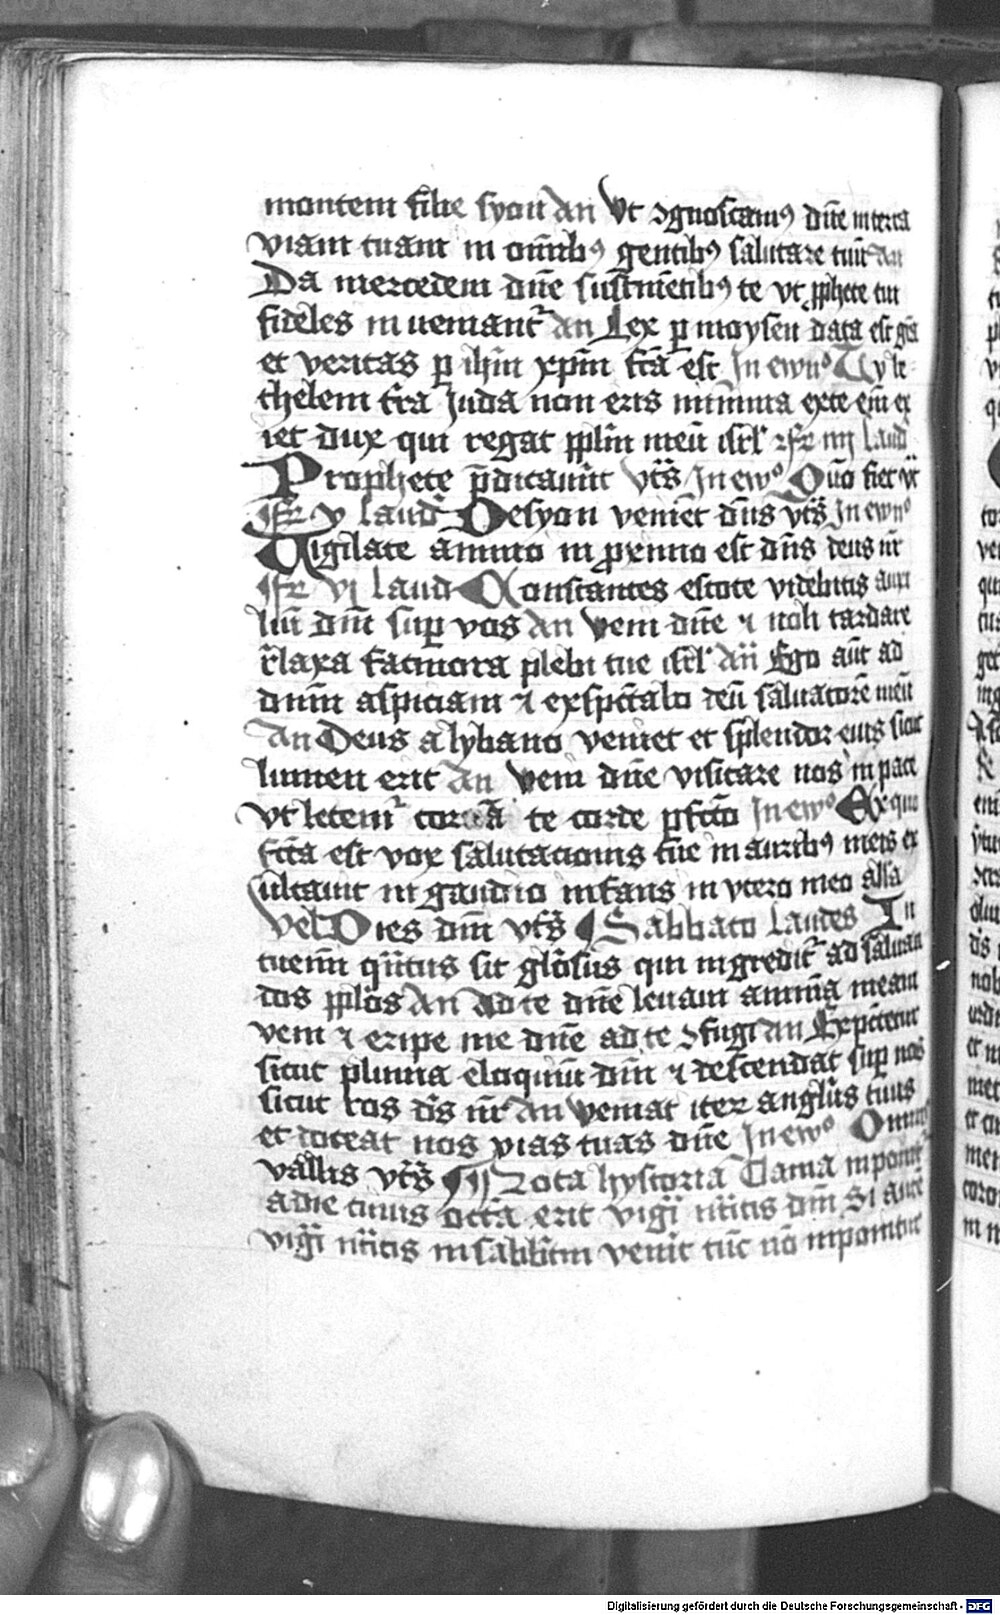 montem filie syon An Vt ꝯgnoscamꝰ dn̄e in terra
viam tuam in om̄ibꝰ gentibꝰ salutare tuū An
Da mercedem dn̄e sustinētibꝰ te vt ꝓphete tui
fideles inueniant᷑ an Lex ꝑ moysen data est gr̄a
et veritas ꝑ ihm̄ xp̄m fc̄a est In ewᵒ
thelem tr̄a Juda non eris minima exte em̄ ex
iet dux qui regat pplm̄ meū isrl̄ fr̄ iiij laud
Prophete p̄dicauūt vts̄ In ewᵒ Quō fiet
fr̄ v laud Desyon veniet dn̄s vts̄ In ewᵒ
Vigilate animo in ꝓximo est dn̄s deus nr̄
fr̄ vj laud Constantes estote videbitis auxi
liū dn̄i suꝑ vos An veni dn̄e ⁊ noli tardare
rl̄axa facinora plebi tue isrl̄ An Ego aūt ad
dnm̄ aspiciam ⁊ exspc̄tabo deū saluatorē meū
An Deus alybano veniet et splendor eius sicut
lumen erit An veni dn̄e visitare nos in pace
vt letem᷑ corā te corde ꝑfc̄to In ewᵒ Ex quo
fc̄ta est vox salutacionis tue in auribꝰ meis ex
ultauit in gaudio infans in vtero meo all̄a
vel Dies dn̄i vts̄ Sabbato Laudes In
tuemī qn̄tus sit glōsus qui ingredit᷑ ad saluan
dos pplos An Ad te dn̄e leuaui animā meam
veni ⁊ eripe me dn̄e ad te ꝯfugi an Expectetur
sicut pluuia eloquiū dn̄i ⁊ descendat suꝑ nos
sicut ros ds̄ nr̄ An veniat iter anglūs tuus
et doceat nos vias tuas dn̄e In ewᵒ Omnis
vallis vts̄ Nota hystoria Clama inponit᷑
a die cuius octā erit vigī nītis dn̄i Si aut̄
vigī nītis in sabbtm̄ venit tūc nō inponitur
Digitalisierung gefördert durch die Deutsche Forschungsgemeinschaft - DFG